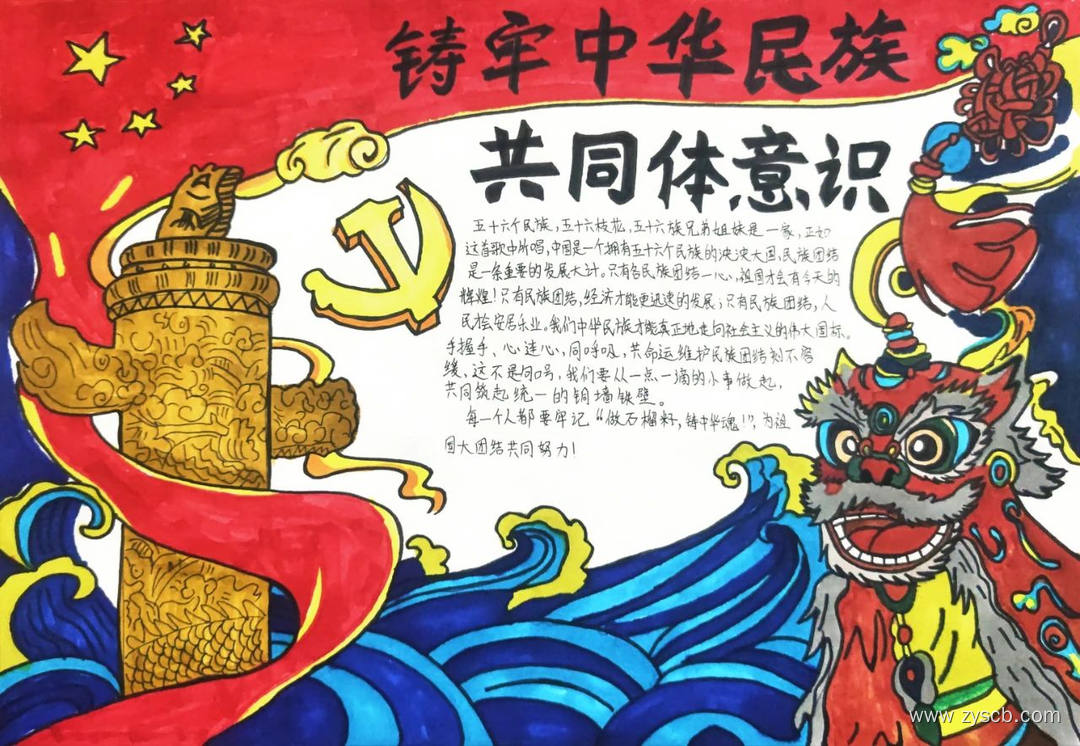 铸牢中华民族
共同体意识
五十六个民族，五十六枝花，五十六族兄弟姐妹是一家，正如
这首歌中所唱，中国是一个拥有五十六个民族的泱泱大国，民族团结
是一条重要的发展大计。只有各民族团结一心，祖国才会有今天的
辉煌！只有民族团结，经济才能更迅速的发展；只有民族团结，人
民才会安居乐业。我们中华民族才能真正地走向社会主义的伟大国标。
手握手、心连心，同呼吸，共命运维护民族团结刻不容
缓，这不是句口号，我们要从一点一滴的小事做起，
共同筑起统一的铜墙铁壁。
每一个人都要牢记“做石榴籽，铸中华魂！”，为祖
国大团结共同努力！
www.zyscb.com